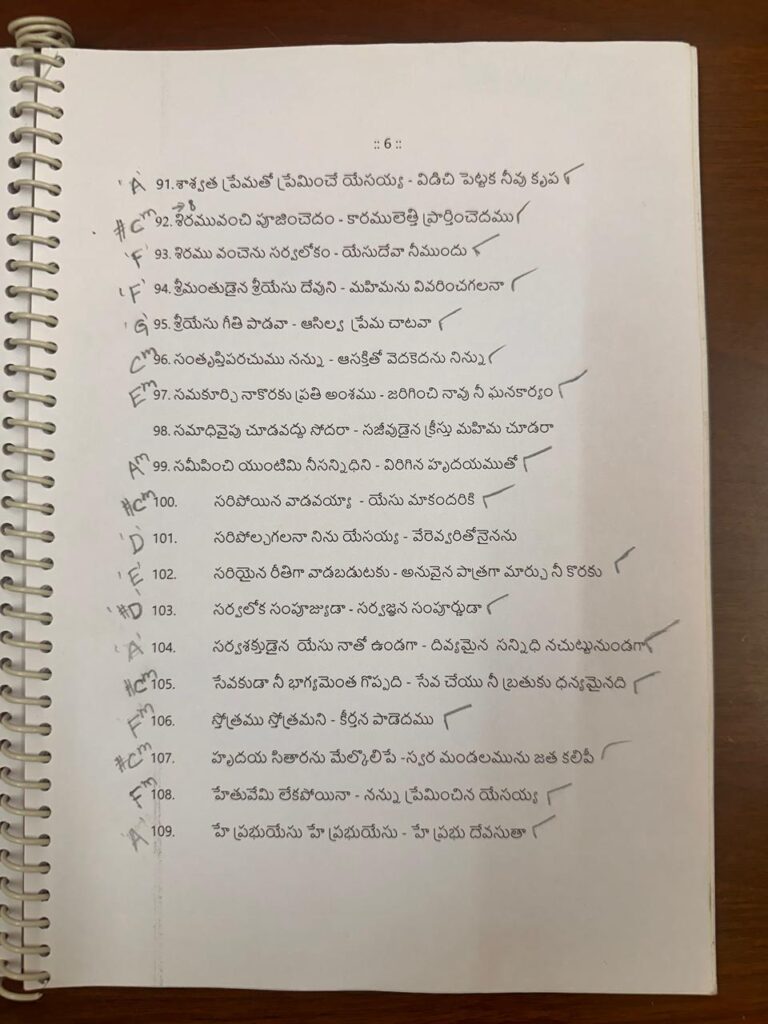 :: 6 ::
'A' 91. శాశ్వత ప్రేమతో ప్రేమించే యేసయ్య - విడిచి పెట్టక నీవు కృప ✓
→8
#Cm 92. శిరమువంచి పూజించెదం - కారములెత్తి ప్రార్తించెదము ✓
'F' 93. శిరము వంచెను సర్వలోకం - యేసుదేవా నీముందు ✓
'F' 94. శ్రీమంతుడైన శ్రీయేసు దేవుని - మహిమను వివరించగలనా ✓
'G' 95. శ్రీయేసు గీతి పాడవా - ఆసిల్వ ప్రేమ చాటవా ✓
Cm 96. సంతృప్తిపరచుము నన్ను - ఆసక్తితో వెదకెదను నిన్ను ✓
Em 97. సమకూర్చి నాకొరకు ప్రతి అంశము - జరిగించి నావు నీ ఘనకార్యం ✓
98. సమాధివైపు చూడవద్దు సోదరా - సజీవుడైన క్రీస్తు మహిమ చూడరా
Am 99. సమీపించి యుంటిమి నీసన్నిధిని - విరిగిన హృదయముతో ✓
#Cm 100. సరిపోయిన వాడవయ్యా - యేసు మాకందరికి ✓
'D' 101. సరిపోల్చగలనా నిను యేసయ్య - వేరెవ్వరితోనైనను
'E' 102. సరియైన రీతిగా వాడబడుటకు - అనువైన పాత్రగా మార్చు నీ కొరకు ✓
'#D' 103. సర్వలోక సంపూజ్యుడా - సర్వజ్ఞన సంపూర్ణుడా ✓
'A' 104. సర్వశక్తుడైన యేసు నాతో ఉండగా - దివ్యమైన సన్నిధి నచుట్టునుండగా ✓
#Cm 105. సేవకుడా నీ భాగ్యమెంత గొప్పది - సేవ చేయు నీ బ్రతుకు ధన్యమైనది ✓
Fm 106. స్తోత్రము స్తోత్రమని - కీర్తన పాడెదము ✓
#Cm 107. హృదయ సితారను మేల్కొలిపే -స్వర మండలమును జత కలిపీ ✓
Fm 108. హేతువేమి లేకపోయినా - నన్ను ప్రేమించిన యేసయ్య ✓
'A' 109. హే ప్రభుయేసు హే ప్రభుయేసు - హే ప్రభు దేవసుతా ✓